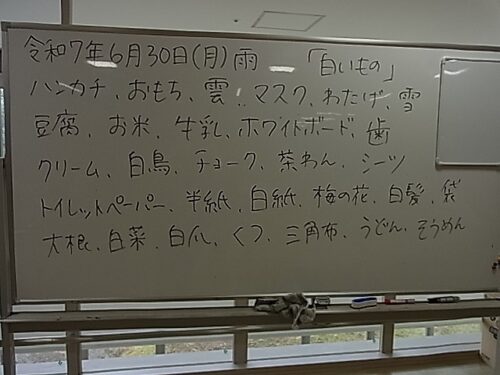 令和7年6月30日(月)雨 「白いもの」
ハンカチ、おもち、雲、マスク、わたげ、雪
豆腐、お米、牛乳、ホワイトボード、歯
クリーム、白鳥、チョーク、茶わん、シーツ
トイレットペーパー、半紙、白紙、梅の花、白髪、袋
大根、白菜、白爪、くつ、三角布、うどん、そうめん